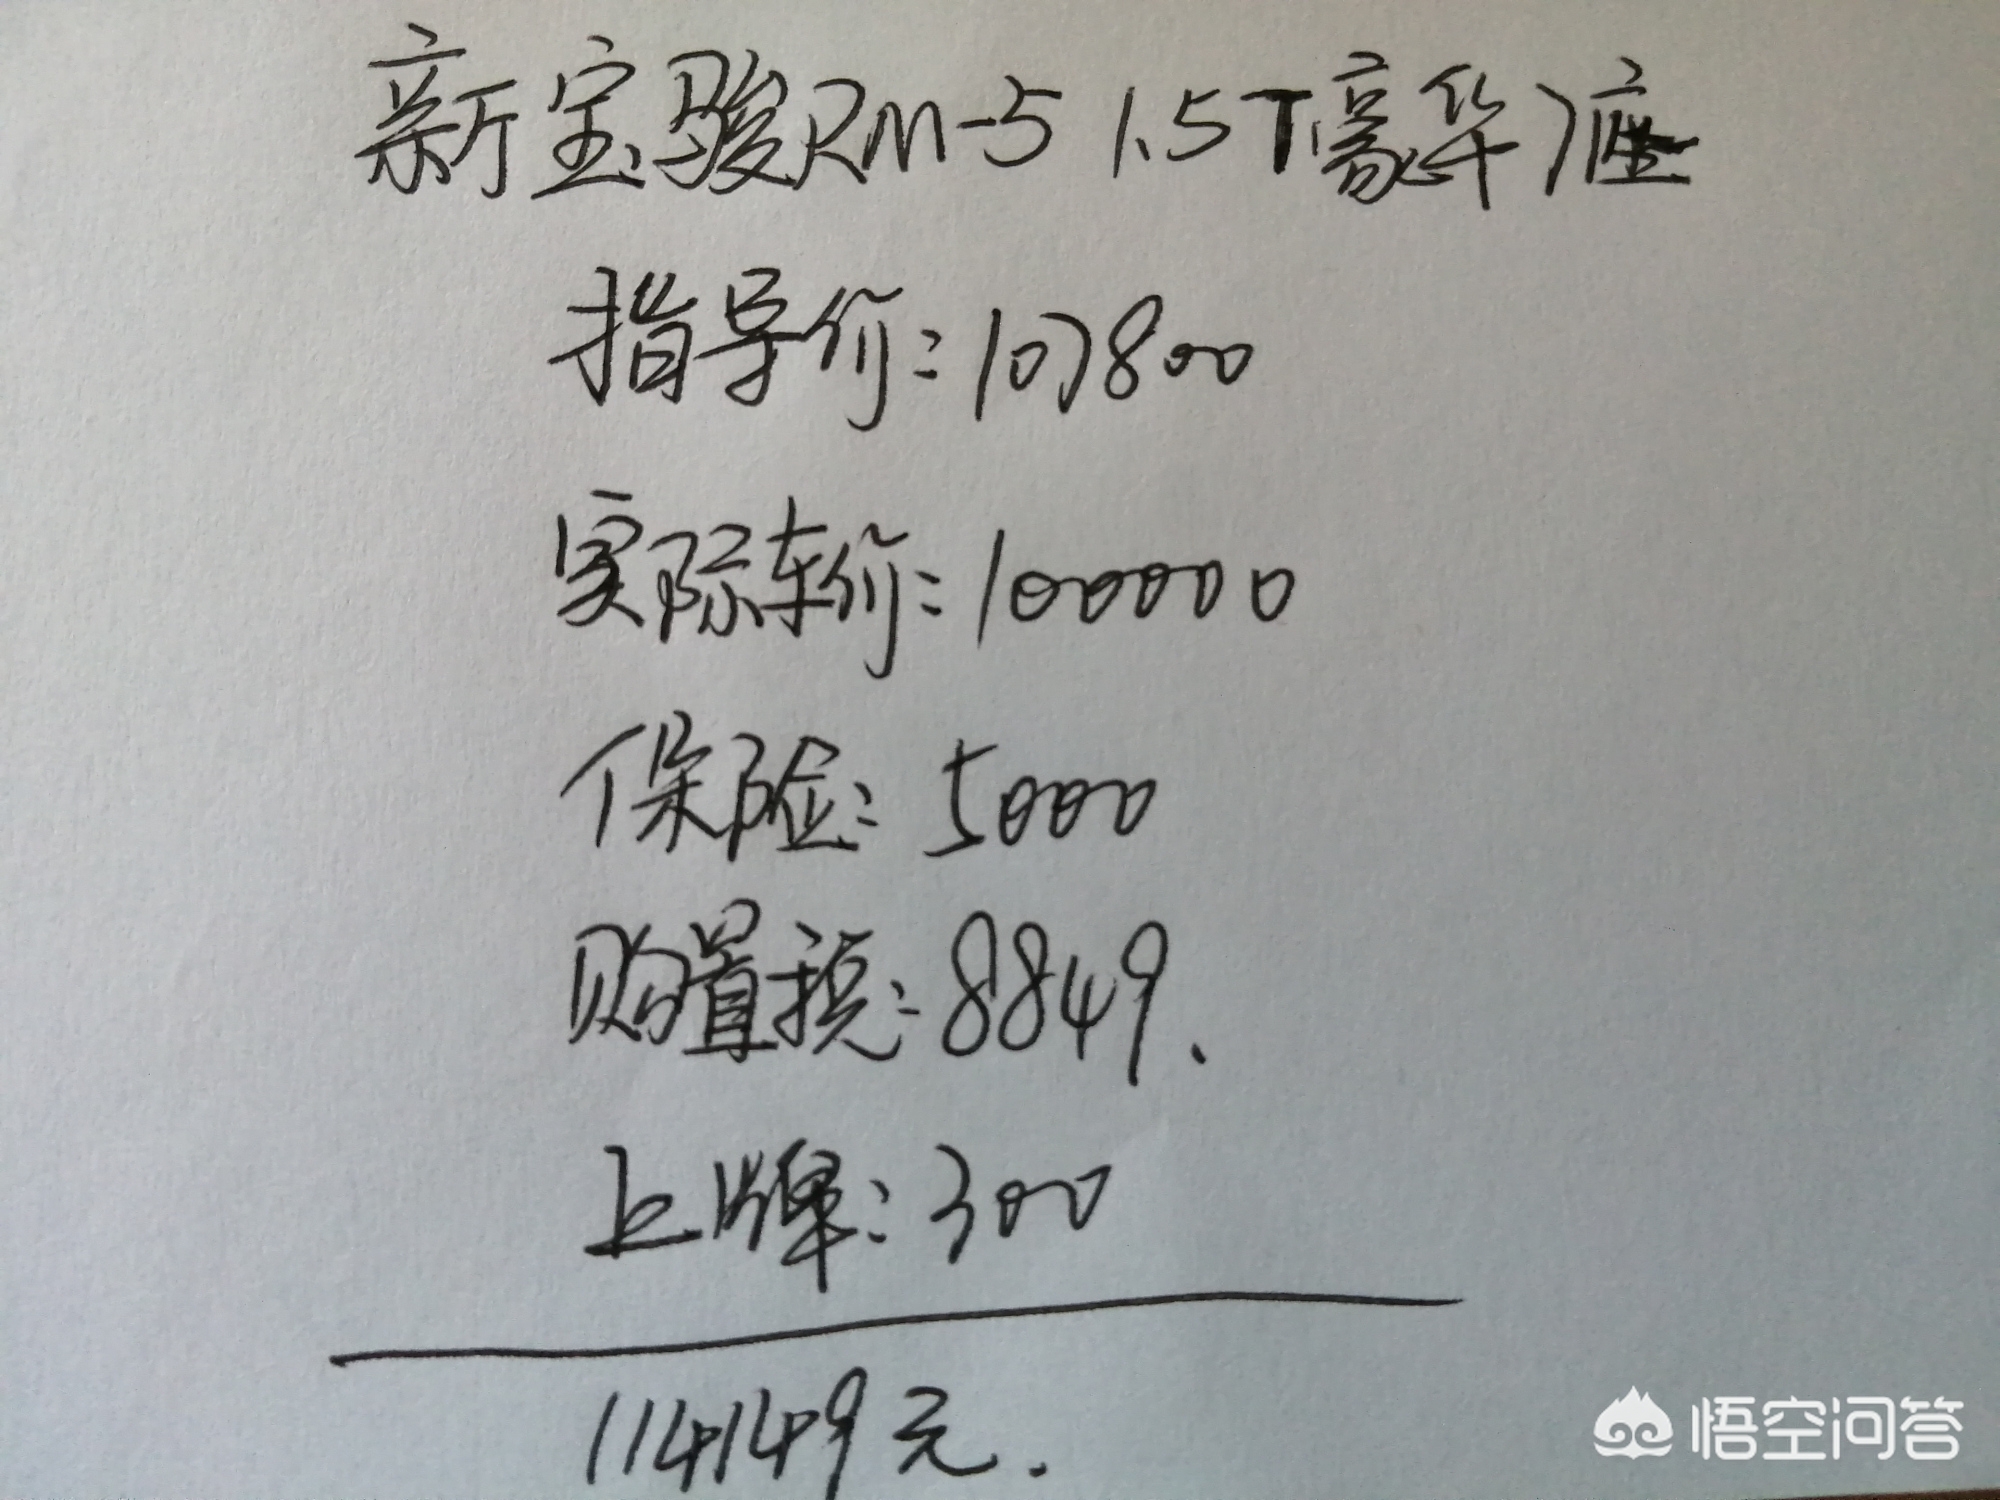 新宝骏RM-5 1.5T豪华7座
指导价:107800
实际车价:100000
保险:5000
购置税:8849.
上牌:300
114149元.
悟空问答